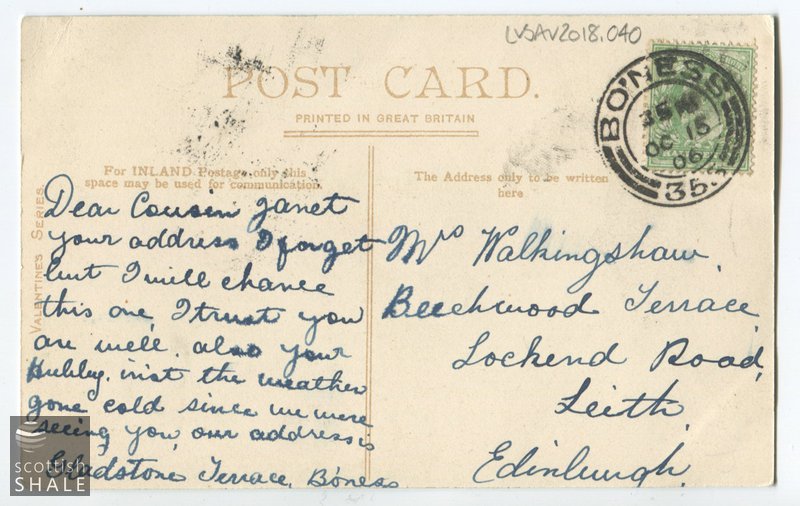 LVSAV2018.040
POST CARD.
PRINTED IN GREAT BRITAIN
BO'NESS
OC 15
06
35
For INLAND Postage only this
space may be used for communication.
The Address only to be written
here
VALENTINES SERIES
Dear Cousin Janet
your address I forget
but I will chance
this one, I trust you
are well. also your
Hubby. isnt the weather
gone cold since we were
seeing you our address is
Gladstone Terrace, Bo'ness
Mrs Walkingshaw,
Beechwood Terrace
Lockend Road,
Leith,
Edinburgh.
scottish
SHALE